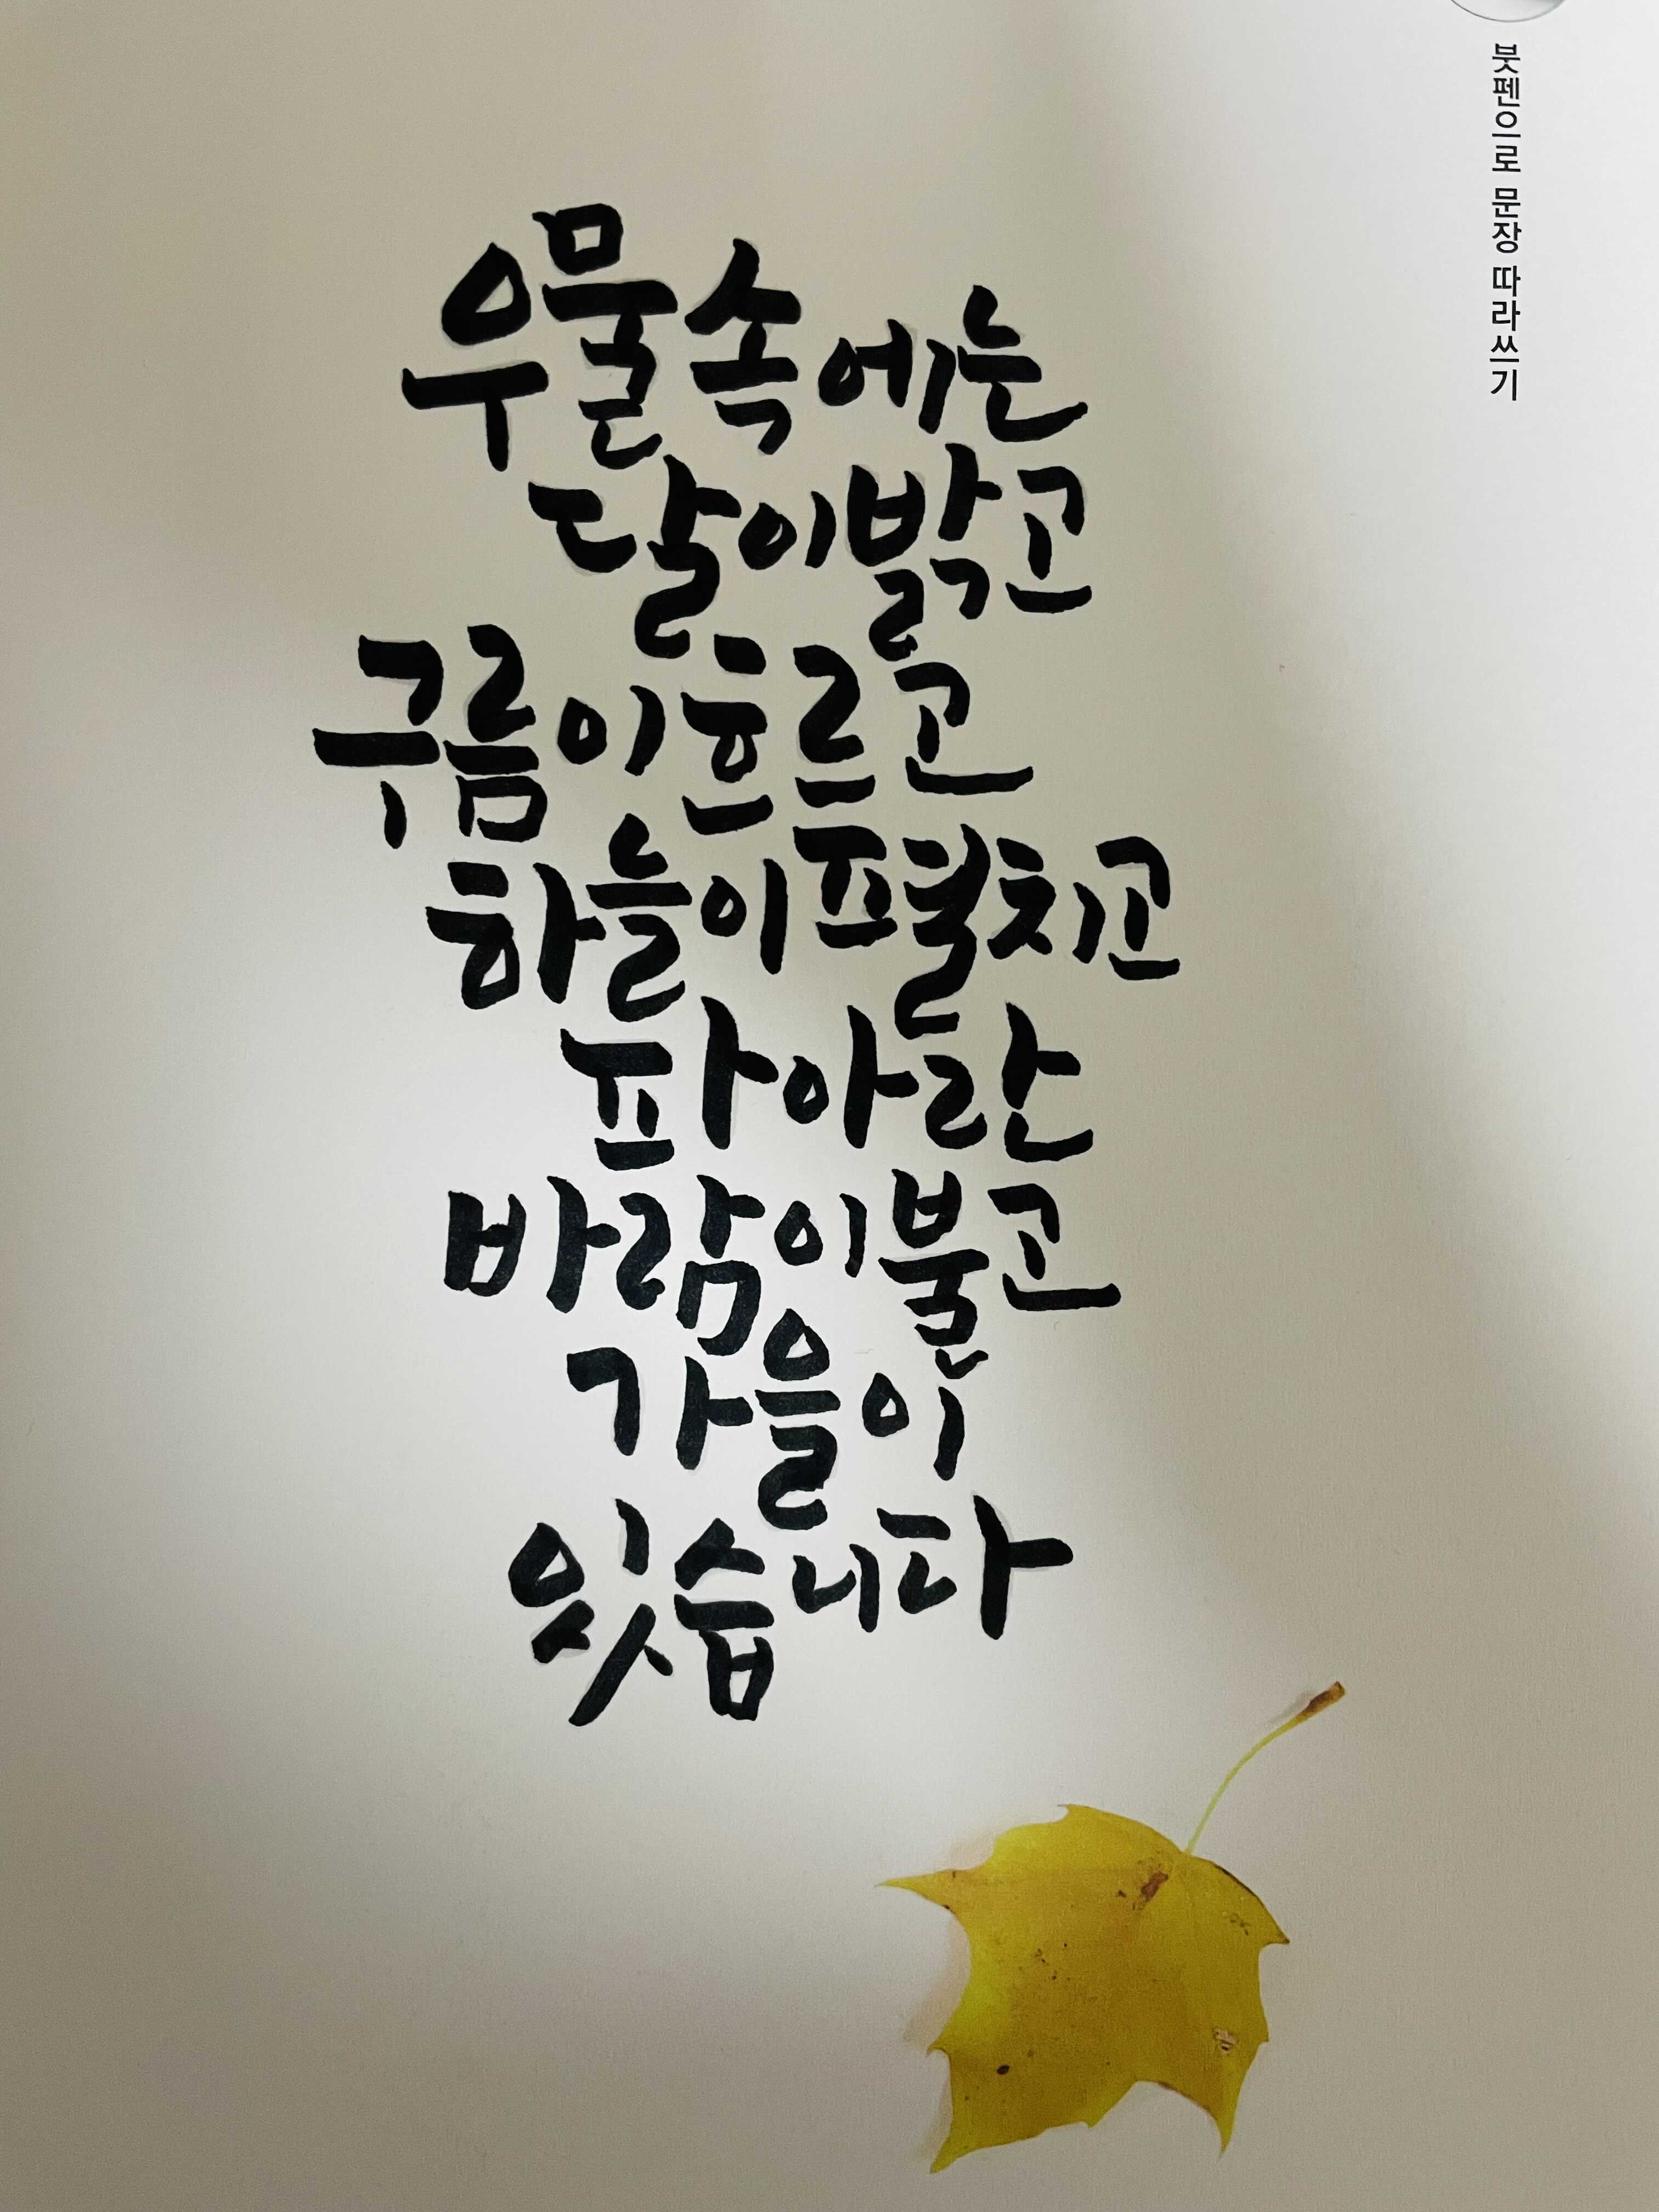 붓펜으로 문장 따라쓰기
우물속에는
달이밝고
구름이흐르고
하늘이펼치고
파아란
바람이불고
가을이
있습니다